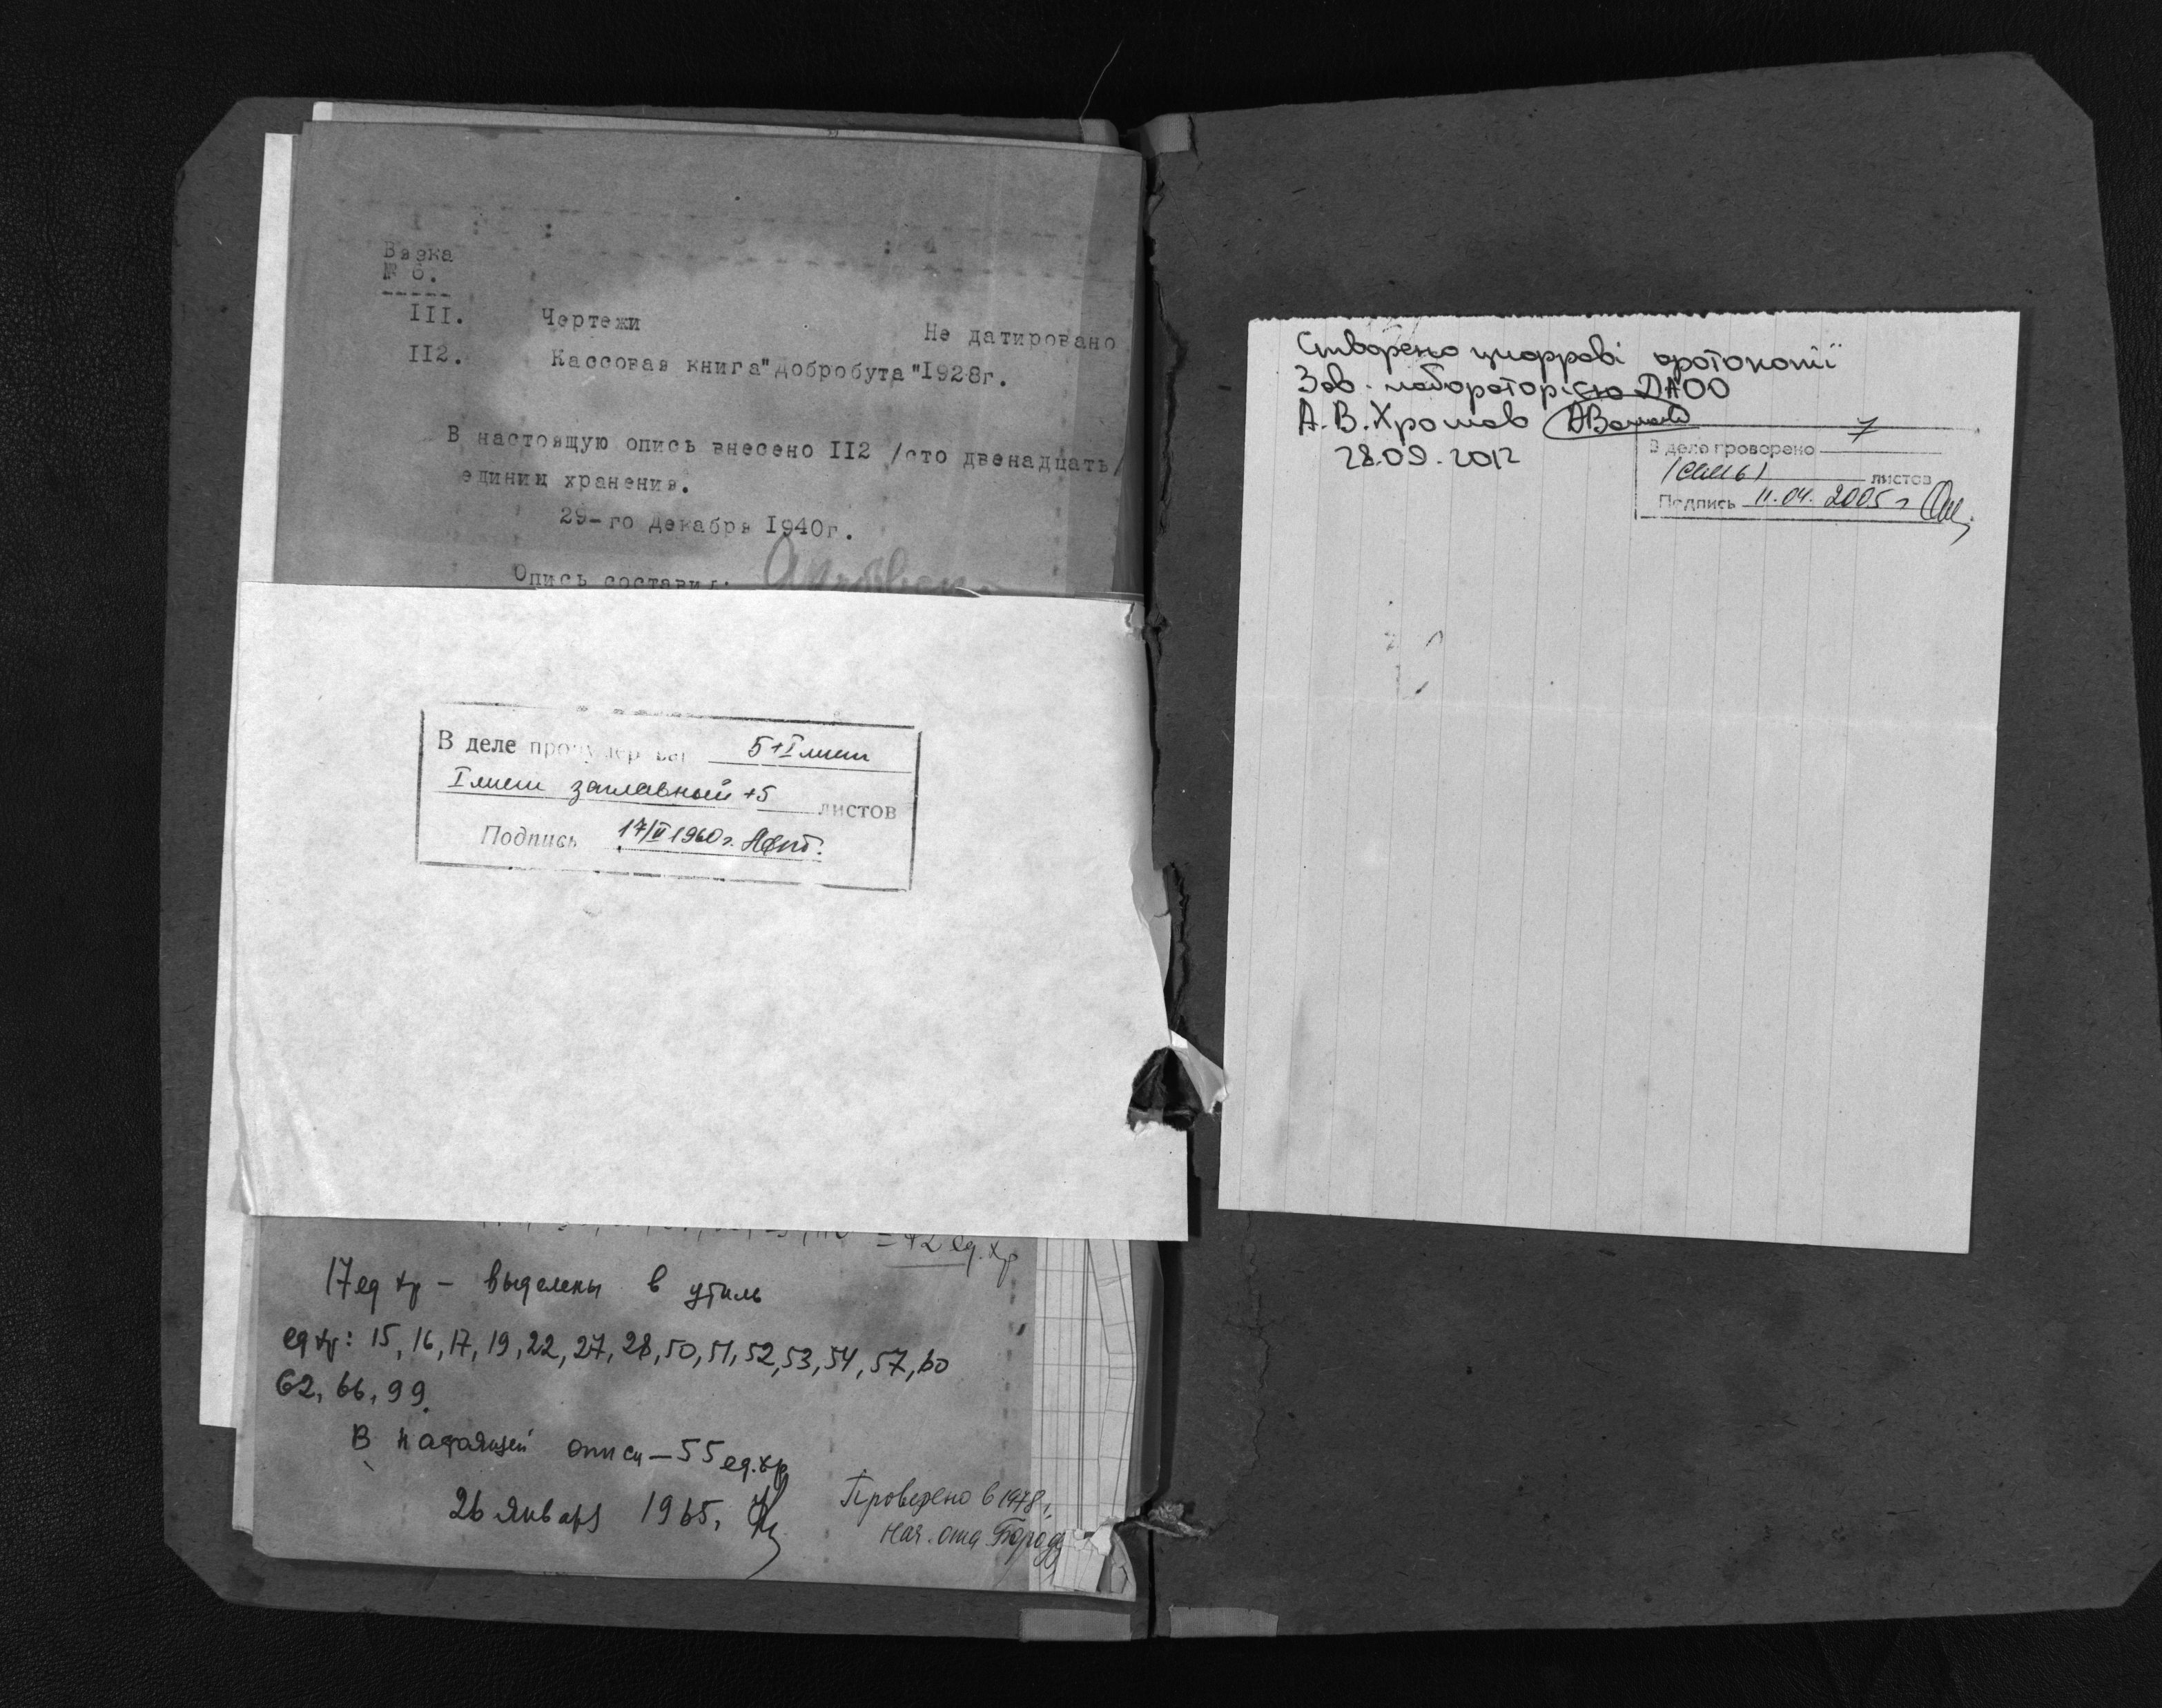 Вязка
№ 6.
III. Чертежи Не датировано
II2. Кассовая книга"Добробута"I928г.
В настоящую опись внесено II2 /сто двенадцать/
единиц хранения.
29-го декабря I940г.
Опись составил:
В деле пронумерован 5+I лист
I лист заглавный +5 листов
Подпись 17/II 1960г.
= 42 ед. хр
17 ед хр - выделены в утиль
ед хр: 15, 16, 17, 19, 22, 27, 28, 50, 51, 52, 53, 54, 57, 60
62, 66, 99.
В настоящей описи - 55 ед.хр
26 января 1965.
Проверено в 1978,
нач. отд.
Створено цифрові фотокопії
Зав. лабораторією ДАОО
А.В. Хромов
28.09.2012
В деле проворено 7
(семь) листов
Подпись 11.04.2005г